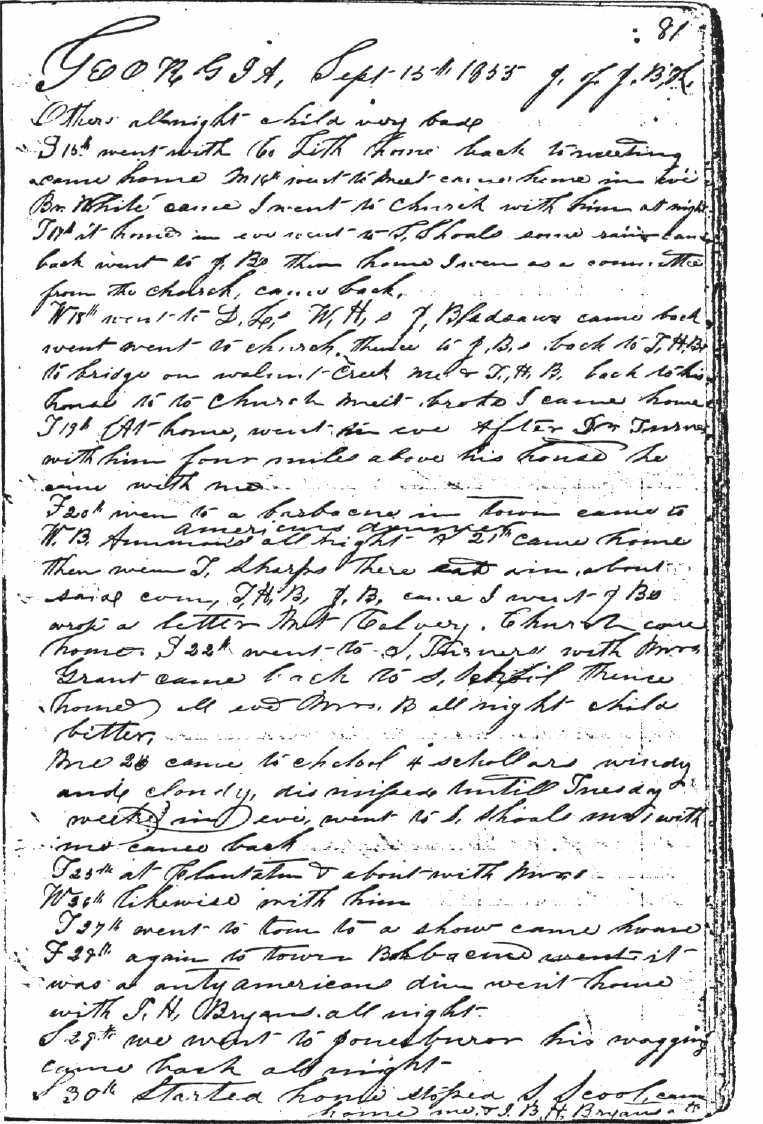 81
GEORGIA, Sept 15th, 1855 J. of J. B. H.
Others all night child very bad
S 15th went with to Lith home back to meeting
came home M 16th went to meet came home in eve
Br. White came I went to church with him at night
T 17th at home in eve went to S. Shoals some rain came
back went to J. Bs then home I wen as a committe
from the church, came back.
W 18th went to D. L,s W, H, s J, Bledsaws came back
went went to church, thence to J. B,s back to T. H. Bs
to bridge on walnut Creek me & T. H. B. back to his
house to to church meet. broke I came home
T 19th At home, went in eve After Dr Turner
with him four miles above his house he
came with me
F 20th wen to a barbacue in town came to
americans dinner
W. B. Ammons all night S 21th came home
then wen T. Sharps there eat din. about
said corn, T, H, B, J, B, came I went J Bs
wrote a letter Mt Calvery. Church come
home. S 22th went to S, Turners with Mrs
Grant came back to S, thence
home all eve Mrs. B all night child
better,
Me 24 came to chdool 4 schollars windy
and cloudy, dismissed untill Tuesday
week in eve, went to S. Shoals with
me came back
T 25th at Plantatin & about with
W 26th likewise with him
T 27th went to town to a show came home
F 28th again to town Bobbacue went it
was a antyamericans din went home
with T. H, Bryans. all night
S 29th we went to Jonesburor his wagging
came back all night
S 30th Started home stoped S, Scool, cam
home me. & J. B. H. Bryans